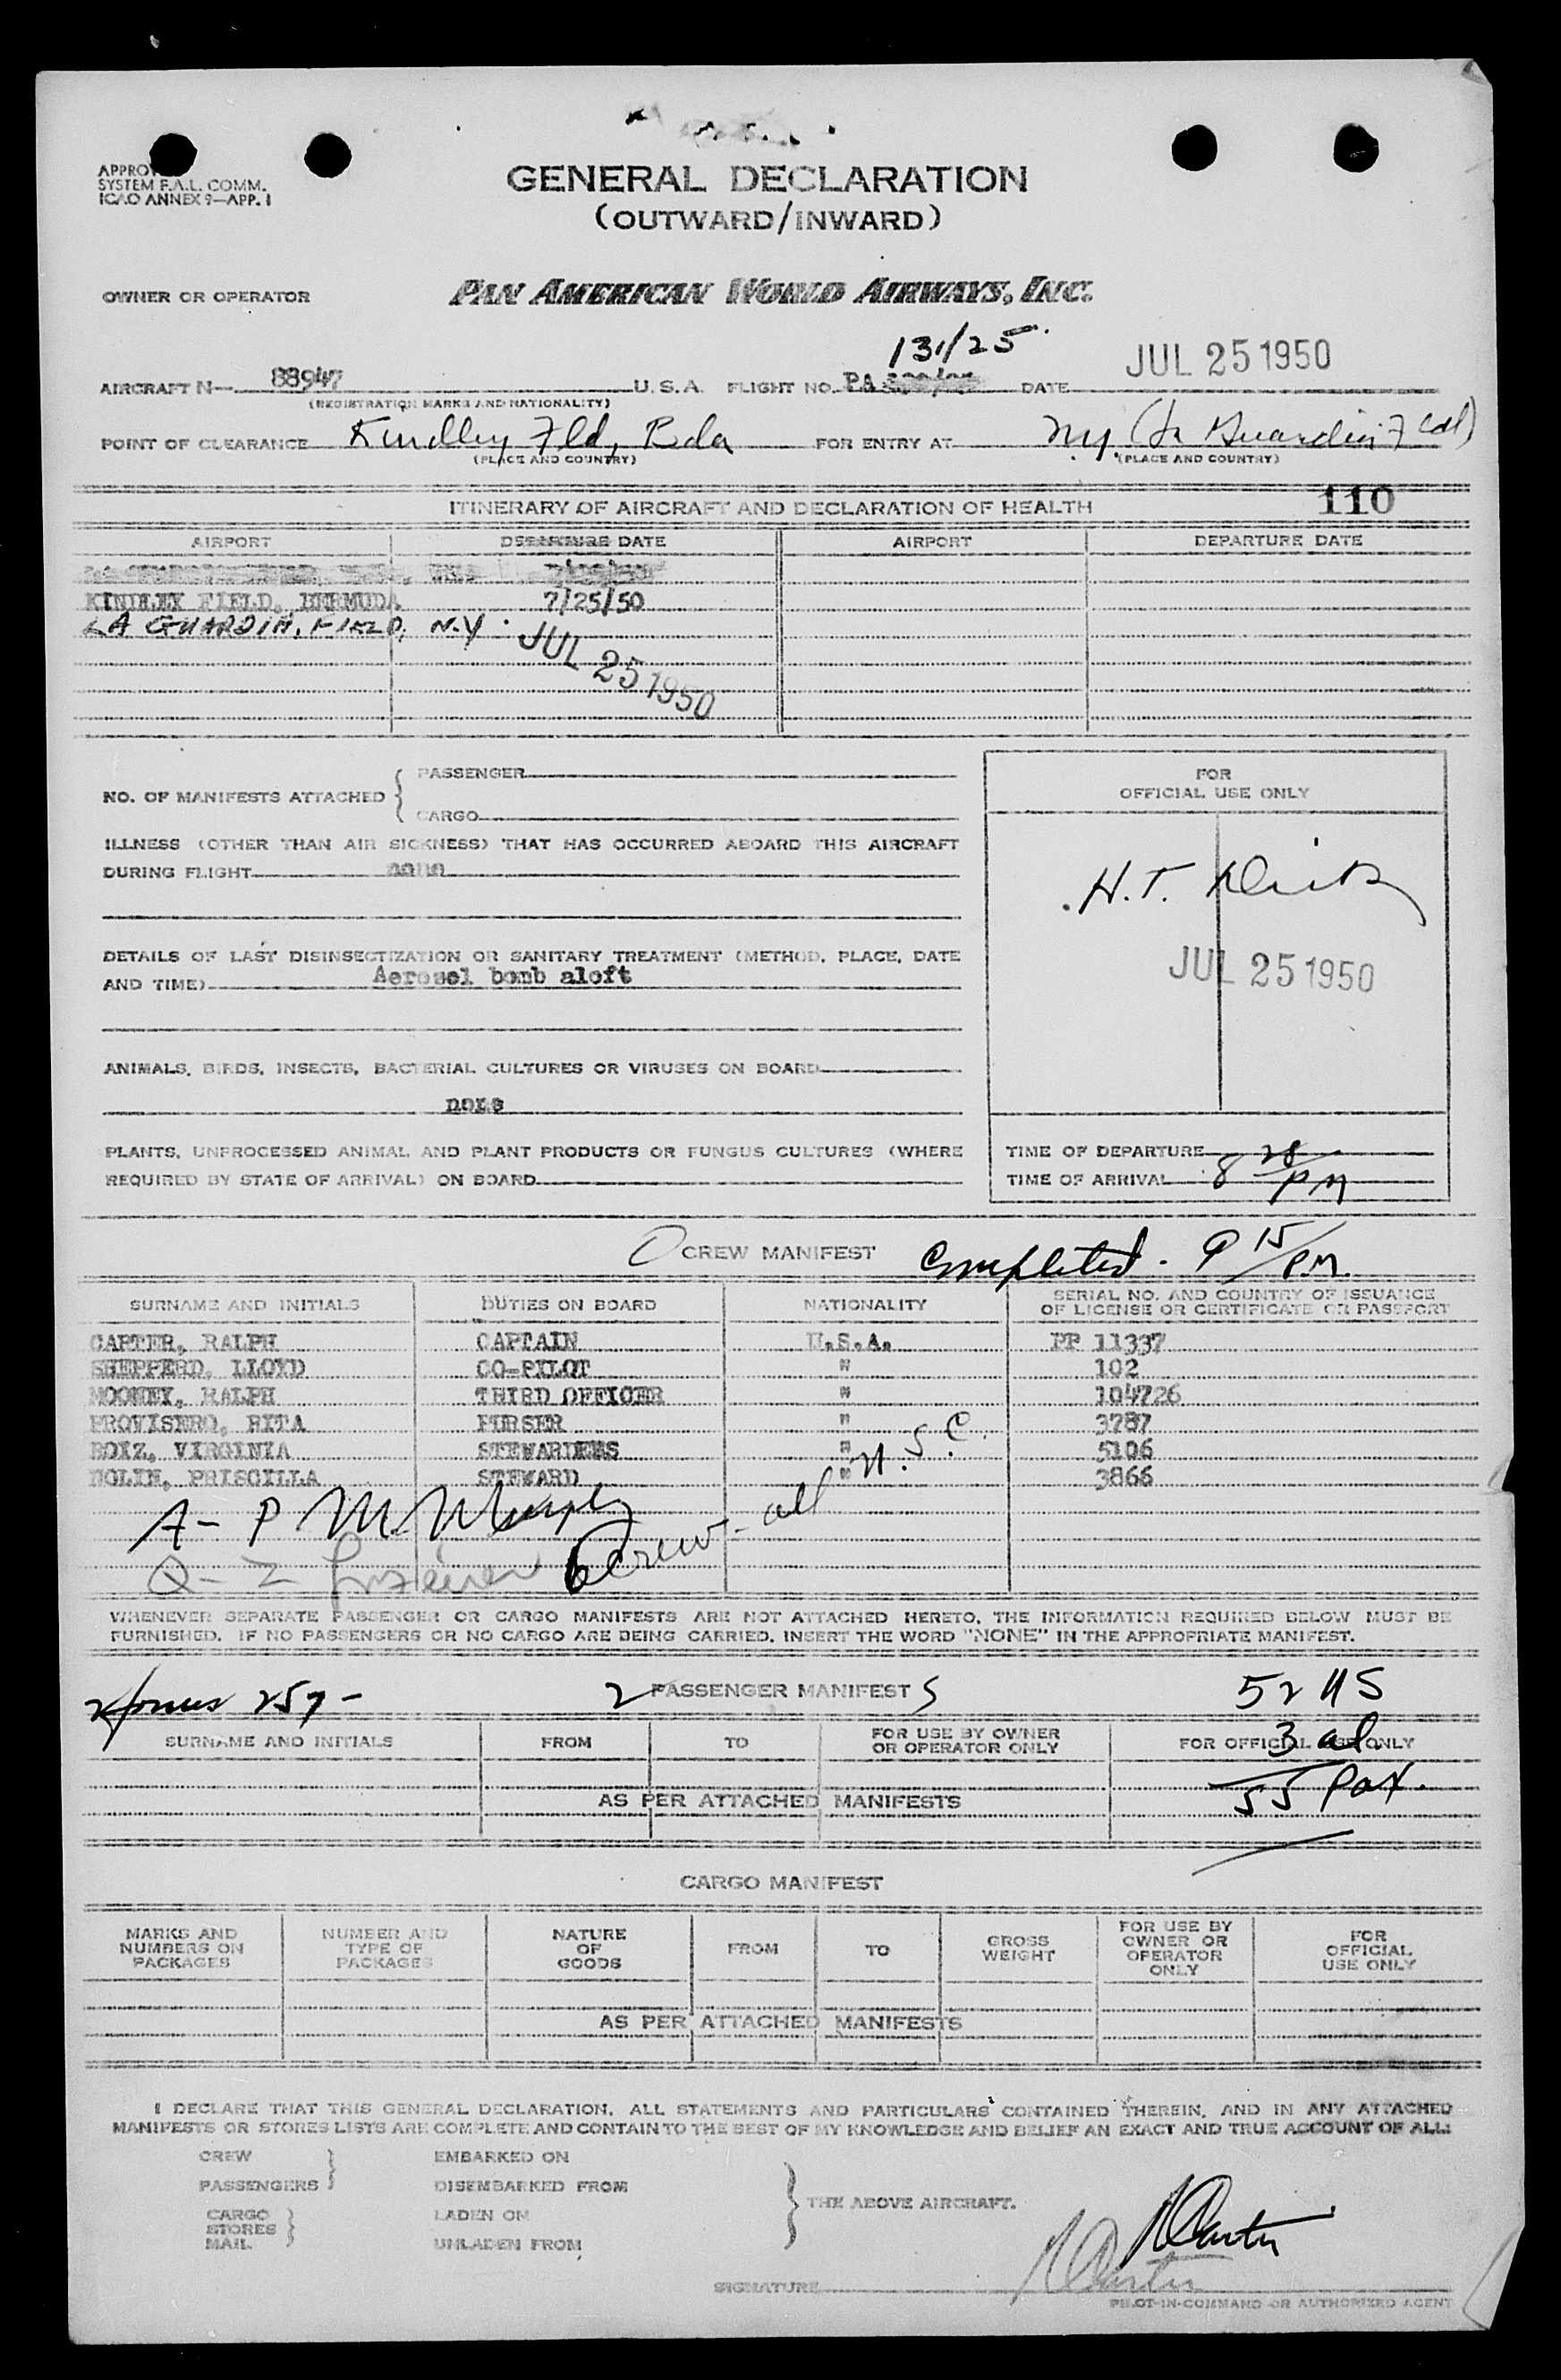 GENERAL DECLARATION
(OUTWARD/INWARD)
SYSTEM F.A.L. COMM.
ICAO ANNEX 9—APP. 1
OWNER OR OPERATOR PAN AMERICAN WORLD AIRWAYS, INC.
131/25
AIRCRAFT N— 88947 U.S.A. FLIGHT NO. PA DATE JUL 25 1950
(REGISTRATION MARKS AND NATIONALITY)
POINT OF CLEARANCE Kindley Fld, Bda FOR ENTRY AT N.Y. (La Guardia Fld)
(PLACE AND COUNTRY) (PLACE AND COUNTRY)
ITINERARY OF AIRCRAFT AND DECLARATION OF HEALTH 110
AIRPORT DEPARTURE DATE AIRPORT DEPARTURE DATE
KINDLEY FIELD, BERMUDA 7/25/50
LA GUARDIA, FIELD, N.Y. JUL 25 1950
NO. OF MANIFESTS ATTACHED PASSENGER
CARGO
ILLNESS (OTHER THAN AIR SICKNESS) THAT HAS OCCURRED ABOARD THIS AIRCRAFT
DURING FLIGHT none
DETAILS OF LAST DISINSECTIZATION OR SANITARY TREATMENT (METHOD, PLACE, DATE
AND TIME) Aerosel bomb aloft
ANIMALS, BIRDS, INSECTS, BACTERIAL CULTURES OR VIRUSES ON BOARD
none
PLANTS, UNPROCESSED ANIMAL AND PLANT PRODUCTS OR FUNGUS CULTURES (WHERE
REQUIRED BY STATE OF ARRIVAL) ON BOARD
FOR
OFFICIAL USE ONLY
H.T.
JUL 25 1950
TIME OF DEPARTURE
TIME OF ARRIVAL 8 28/PM
CREW MANIFEST Completed - 9 15/P.M.
SURNAME AND INITIALS DUTIES ON BOARD NATIONALITY SERIAL NO. AND COUNTRY OF ISSUANCE
OF LICENSE OR CERTIFICATE OR PASSPORT
CARTER, RALPH CAPTAIN U.S.A. PP 11337
SHEPPERD, LLOYD CO-PILOT " 102
MOONEY, RALPH THIRD OFFICER " 104726
PROVISERO, RITA PURSER " 3787
BOIZ, VIRGINIA STEWARDESS " 5106
NOLIN, PRISCILLA STEWARD " 3866
A- P M. Murphy
6 Crew - all U.S.C.
WHENEVER SEPARATE PASSENGER OR CARGO MANIFESTS ARE NOT ATTACHED HERETO, THE INFORMATION REQUIRED BELOW MUST BE
FURNISHED. IF NO PASSENGERS OR NO CARGO ARE BEING CARRIED, INSERT THE WORD "NONE" IN THE APPROPRIATE MANIFEST.
2 forms 257 - 2 PASSENGER MANIFEST S 52 US
SURNAME AND INITIALS FROM TO FOR USE BY OWNER
OR OPERATOR ONLY FOR OFFICIAL USE ONLY
3 al.
55 Pax.
AS PER ATTACHED MANIFESTS
CARGO MANIFEST
MARKS AND
NUMBERS ON
PACKAGES
NUMBER AND
TYPE OF
PACKAGES
NATURE
OF
GOODS
FROM
TO
GROSS
WEIGHT
FOR USE BY
OWNER OR
OPERATOR
ONLY
FOR
OFFICIAL
USE ONLY
AS PER ATTACHED MANIFESTS
I DECLARE THAT THIS GENERAL DECLARATION, ALL STATEMENTS AND PARTICULARS CONTAINED THEREIN, AND IN ANY ATTACHED
MANIFESTS OR STORES LISTS ARE COMPLETE AND CONTAIN TO THE BEST OF MY KNOWLEDGE AND BELIEF AN EXACT AND TRUE ACCOUNT OF ALL:
CREW EMBARKED ON
PASSENGERS DISEMBARKED FROM
THE ABOVE AIRCRAFT.
CARGO LADEN ON
STORES
MAIL UNLADEN FROM
R Carter
SIGNATURE R Carter
PILOT-IN-COMMAND OR AUTHORIZED AGENT